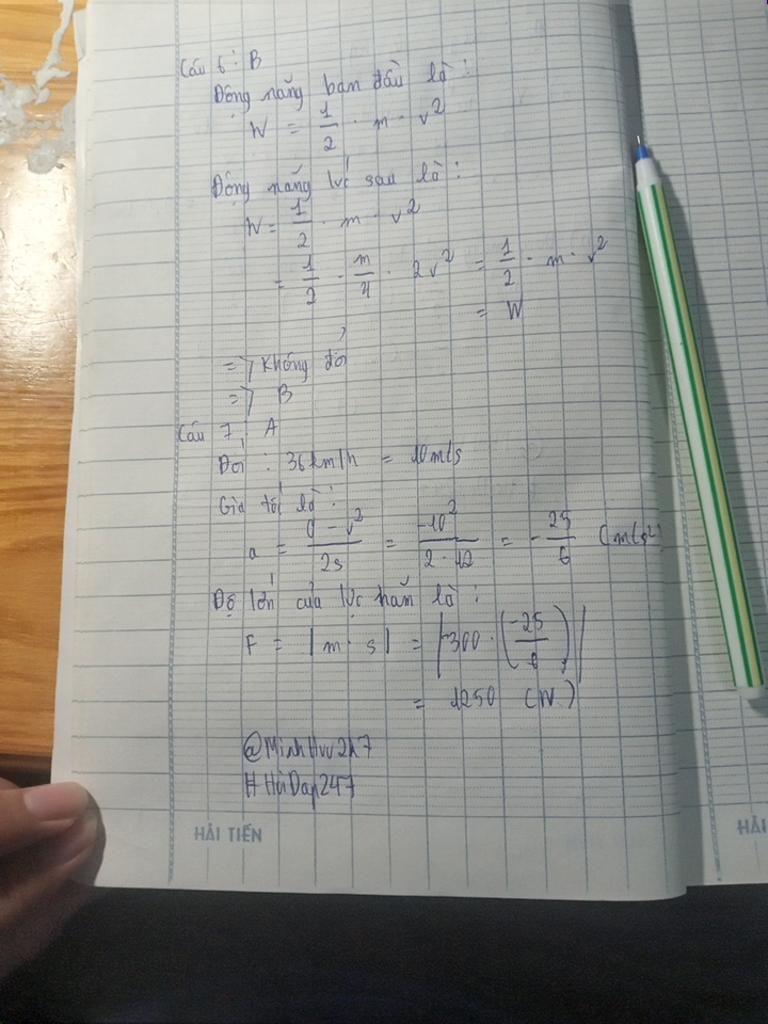 Câu 6: B
Động năng ban đầu là:
W = 1/2 · m · v²
Động năng lúc sau là:
W = 1/2 · m · v²
= 1/2 · m/4 · 2v² = 1/2 · m · v²
= W
=> Không đổi
=> B
Câu 7: A
Đổi: 36km/h = 10m/s
Gia tốc là:
a = (0 - v²)/(2s) = (-10²)/(2 · 12) = -25/6 (m/s²)
Độ lớn của lực hãm là:
F = |m · s| = |300 · (-25/6)|
= 1250 (N)
@MinhHuu2k7
#HoiDap247
HẢI TIẾN
HẢI